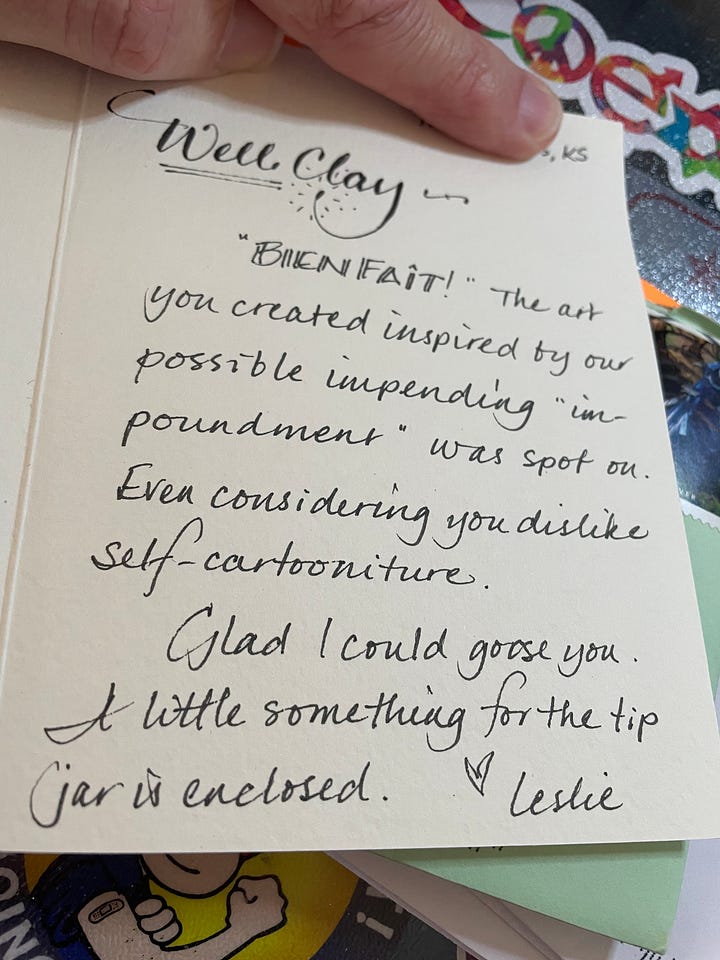 s, KS
Well Clay
"BIEN FAIT!" The art
you created inspired by our
possible impending "im-
poundment" was spot on.
Even considering you dislike
self-cartooniture.
Glad I could goose you.
A little something for the tip
jar is enclosed. leslie